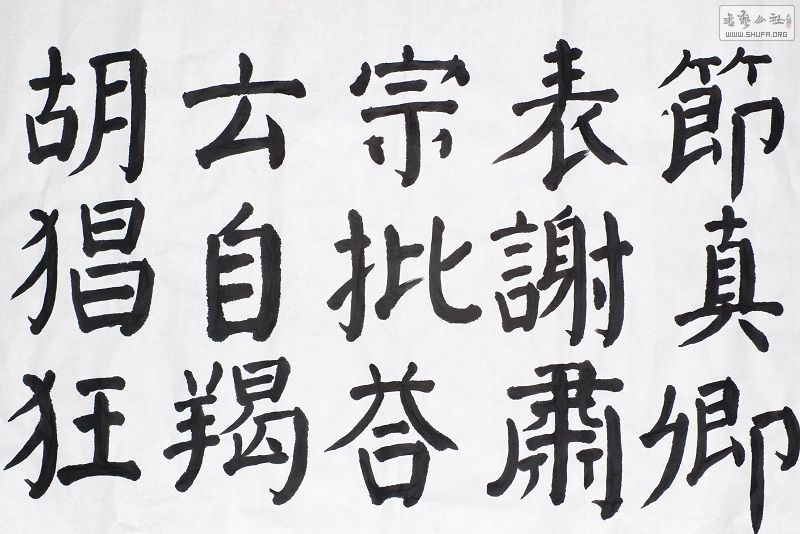 節真卿
表謝肅
宗批荅
云自羯
胡猖狂
书艺公社
WWW.SHUFA.ORG